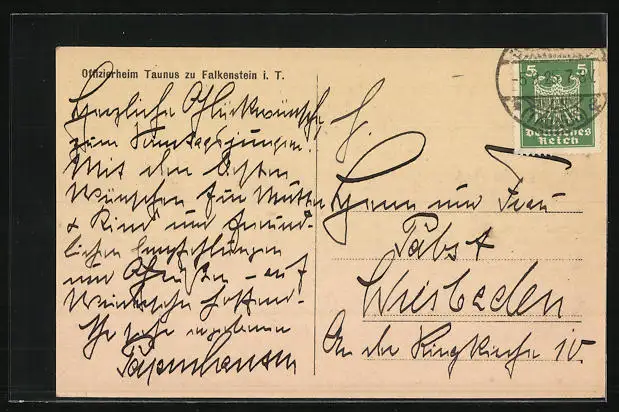 Offizierheim Taunus zu Falkenstein i. T.
Herzliche Glückwünsche
zum Sonntagsjungen!
Mit den besten
Wünschen für Mutter
& Kind und freund-
lichen Empfehlungen
und Grüßen – auf
Ihr sehr ergebener
H.
Herrn und Frau
Pabst
Wiesbaden
An der Ringkirche 10
5 5
Deutsches
Reich